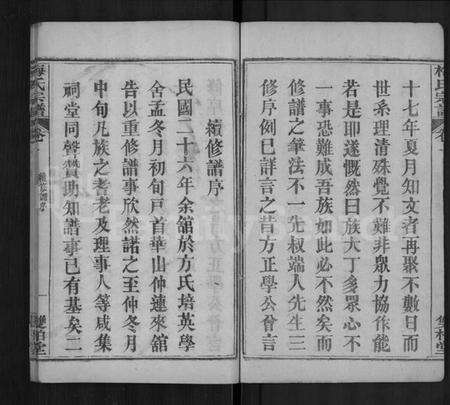 十七年夏月知文者再聚不數日而
世系理清殊覺不難非眾力協作能
若是耶遂慨然曰族大丁多眾心不
一事恐難成吾族如此必不然矣而
修譜之筆法不一先叔端人先生三
修序例已詳言之昔方正學公曾言
續修譜序
民國二十六年余舘於方氏培英學
舍孟冬月初旬戶首華山仲連來舘
告以重修譜事欣然諾之至仲冬月
中旬凡族之耆老及理事人等咸集
祠堂同聲贊助知譜事已有基矣二
梅氏宗譜
卷一
續修譜序
一
雙柏堂